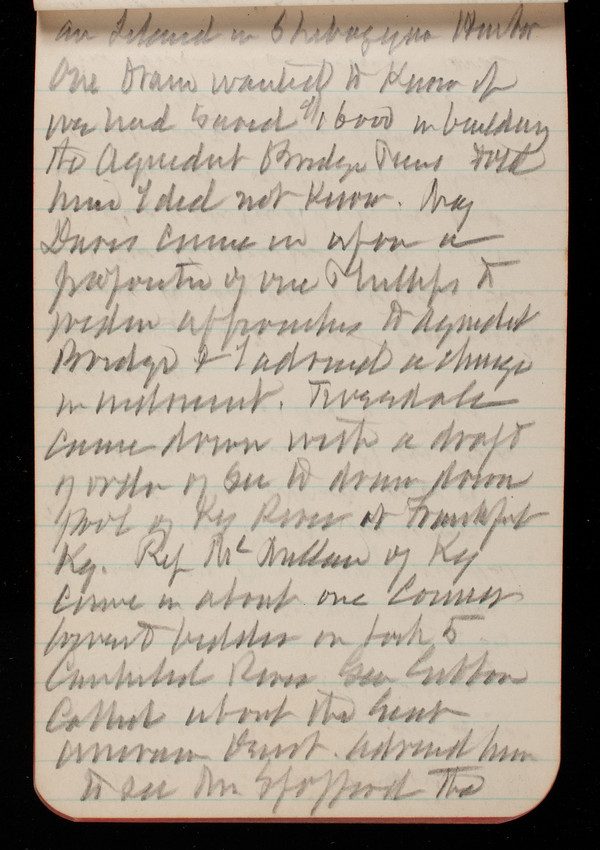 an Island in Sheboygan Harbor
One Dram wanted to know if
we had saved $16000 in building
the Aqueduct Bridge Piers told
him I did not know. Maj
Davis came in upon a
of one Phillips to
widen approaches to Aqueduct
Bridge & I advised a change
in instrument. Truesdale
came down with a draft
of order of Sec to draw down
pool of Ky River at Frankfort
Ky. Rep McMullan of Ky
came in about one Conners
bidder on lock 5
River Gen Gibbon
called about the Great
American advised him
to see Mr Spofford The